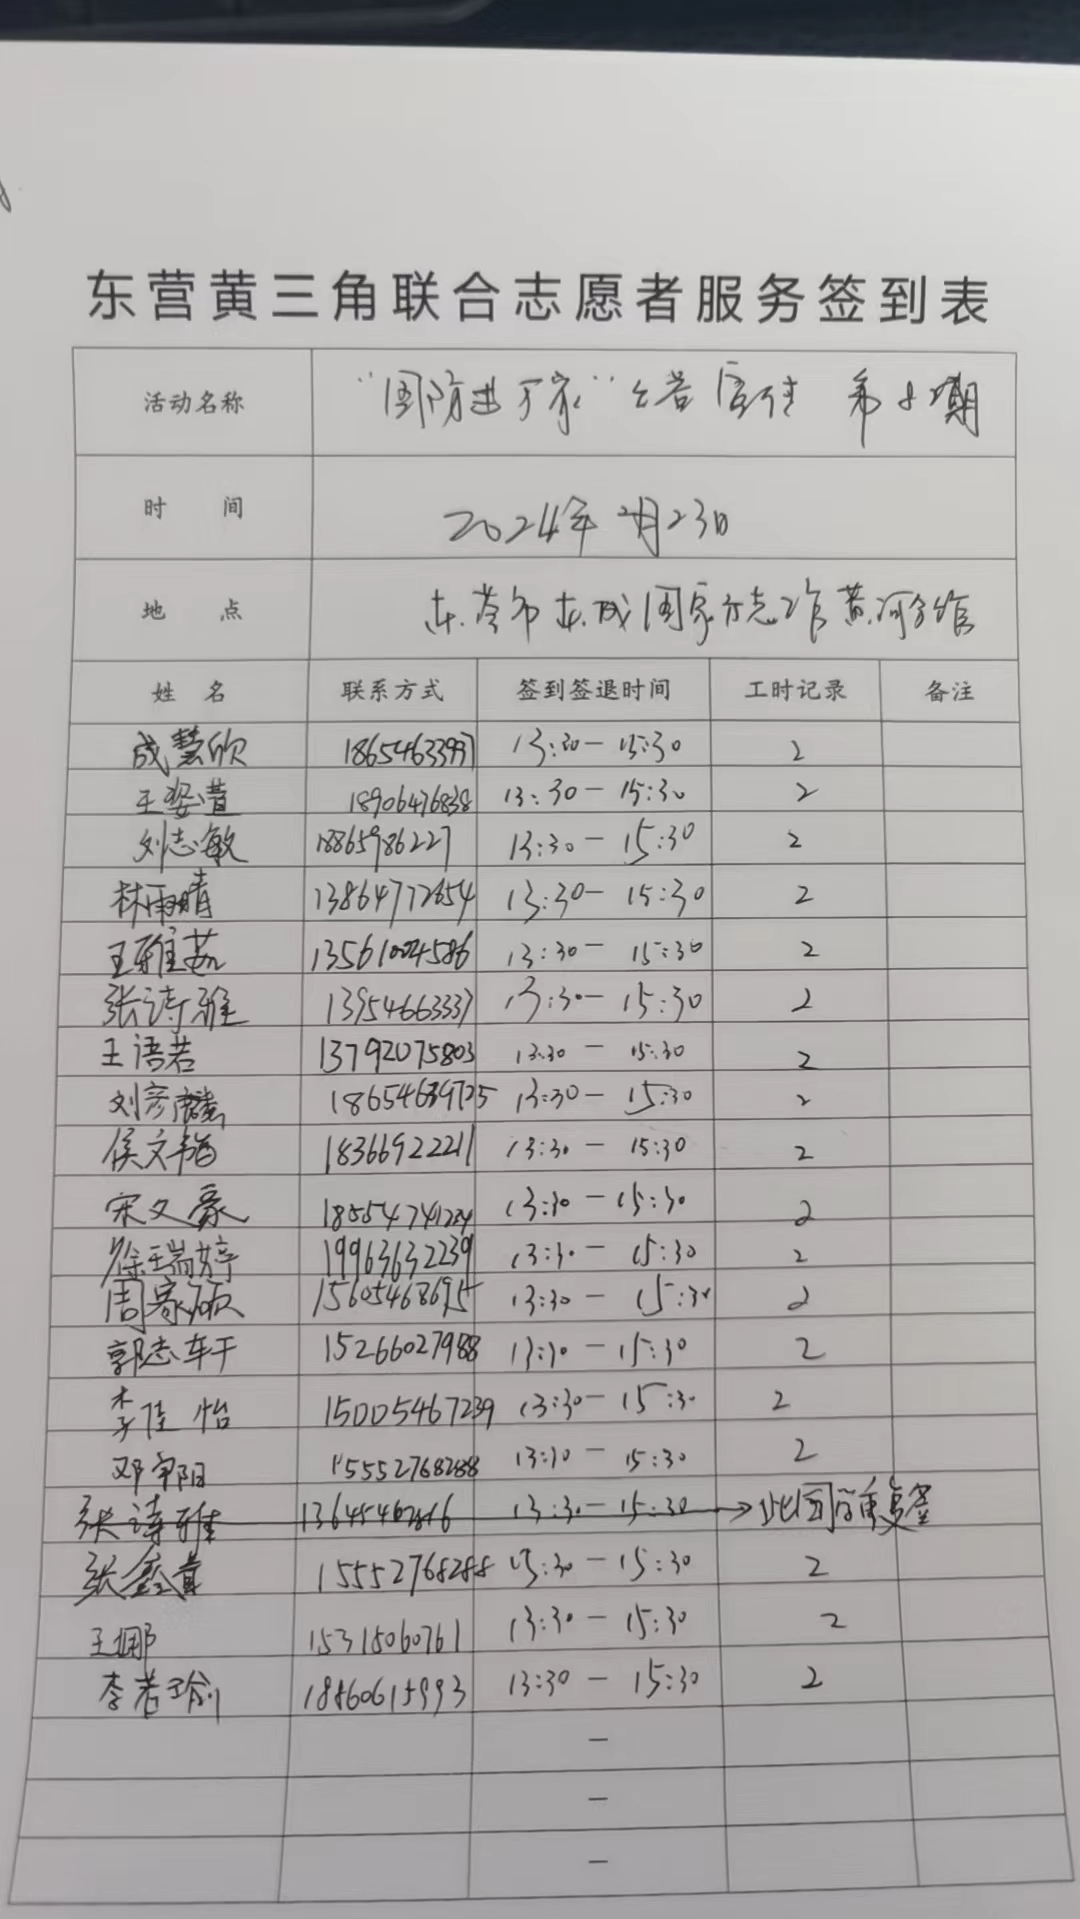 东营黄三角联合志愿者服务签到表
活动名称 "国防进万家"公益宣传 第8期
时 间 2024年2月23日
地 点 东营市东城国家方志馆黄河分馆
姓 名 联系方式 签到签退时间 工时记录 备注
成慧欣 18654633937 13:30-15:30 2
王姿萱 18906476838 13:30-15:30 2
刘志敏 18865986227 13:30-15:30 2
林雨晴 13864772654 13:30-15:30 2
王雅茹 13561004586 13:30-15:30 2
张诗雅 13954663337 13:30-15:30 2
王语若 13792075803 13:30-15:30 2
刘彦麟 18654639725 13:30-15:30 2
侯文韬 18366922211 13:30-15:30 2
宋文豪 18554741234 13:30-15:30 2
徐瑞婷 19963632239 13:30-15:30 2
周家硕 15605468695 13:30-15:30 2
郭志轩 15266027988 13:30-15:30 2
李佳怡 15005467239 13:30-15:30 2
邓宇阳 15552768288 13:30-15:30 2
张诗雅 13:30-15:30 →此同学重复签
张鑫萱 15552768288 13:30-15:30 2
王娜 15315060761 13:30-15:30 2
李若瑜 18860615993 13:30-15:30 2
-
-
-